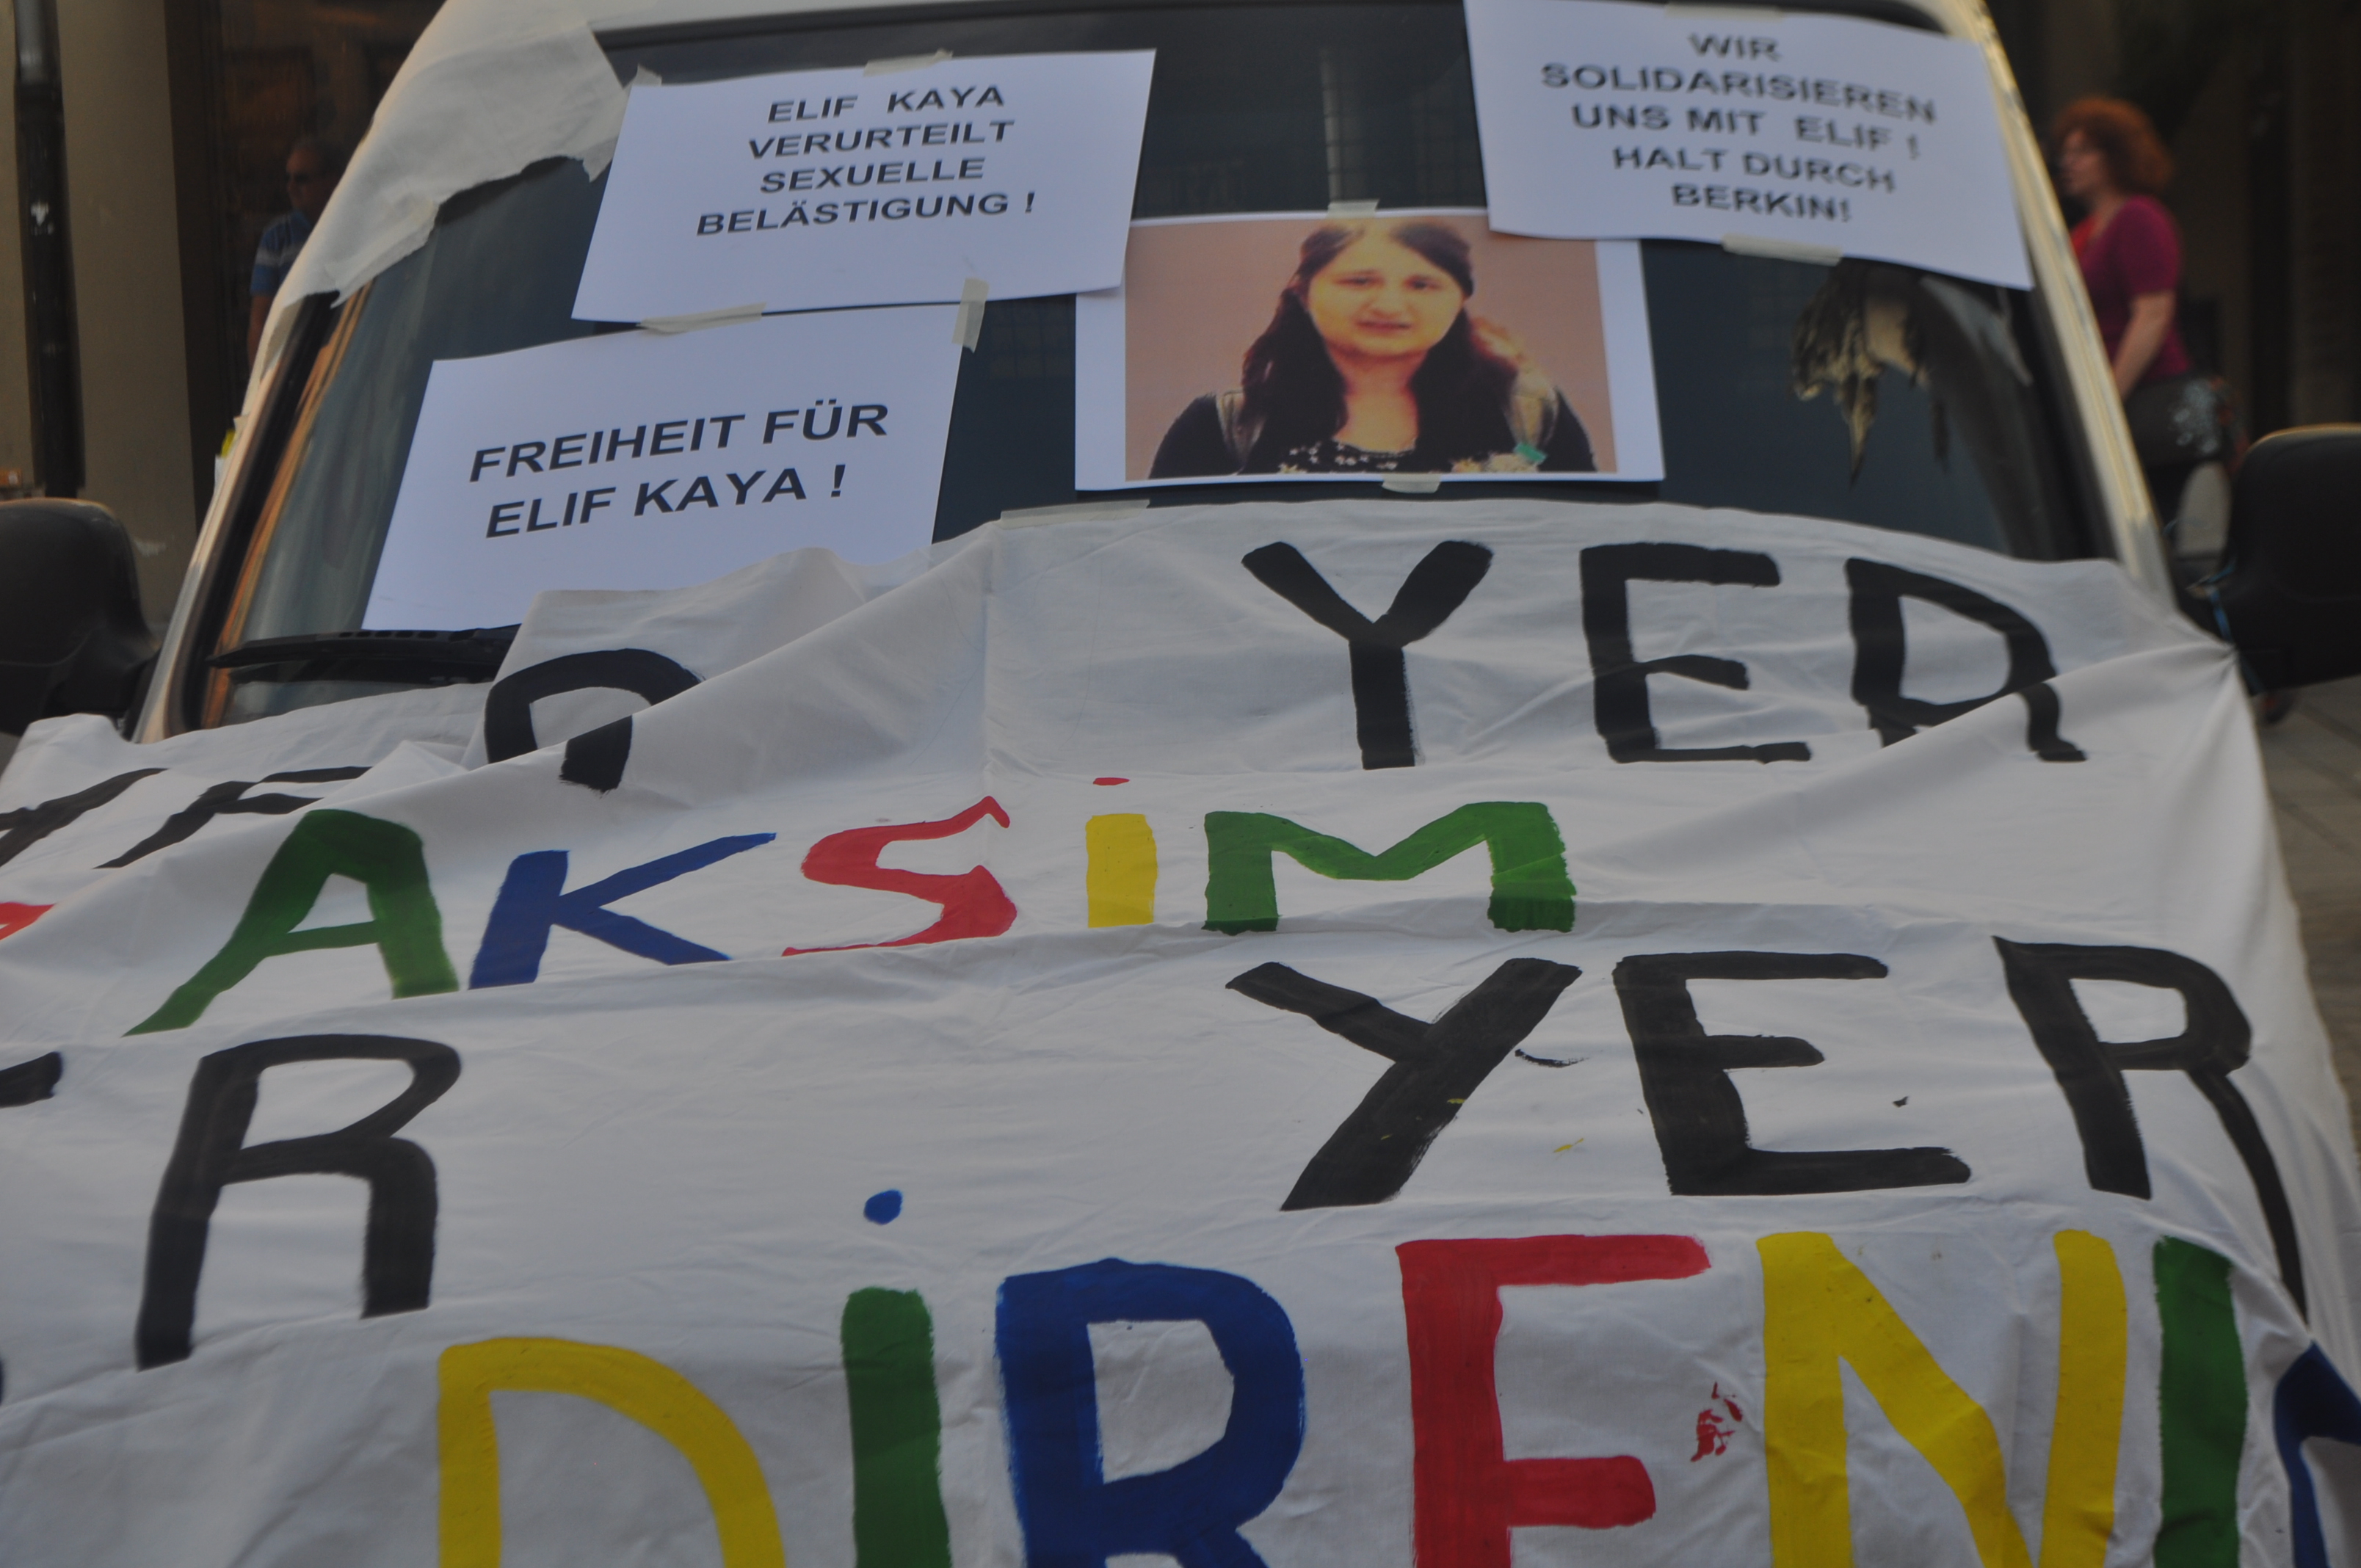 ELIF KAYA
VERURTEILT
SEXUELLE
BELÄSTIGUNG !
WIR
SOLIDARISIEREN
UNS MIT ELIF !
HALT DURCH
BERKIN!
FREIHEIT FÜR
ELIF KAYA !
YER
AKSİM
YER
DİREN